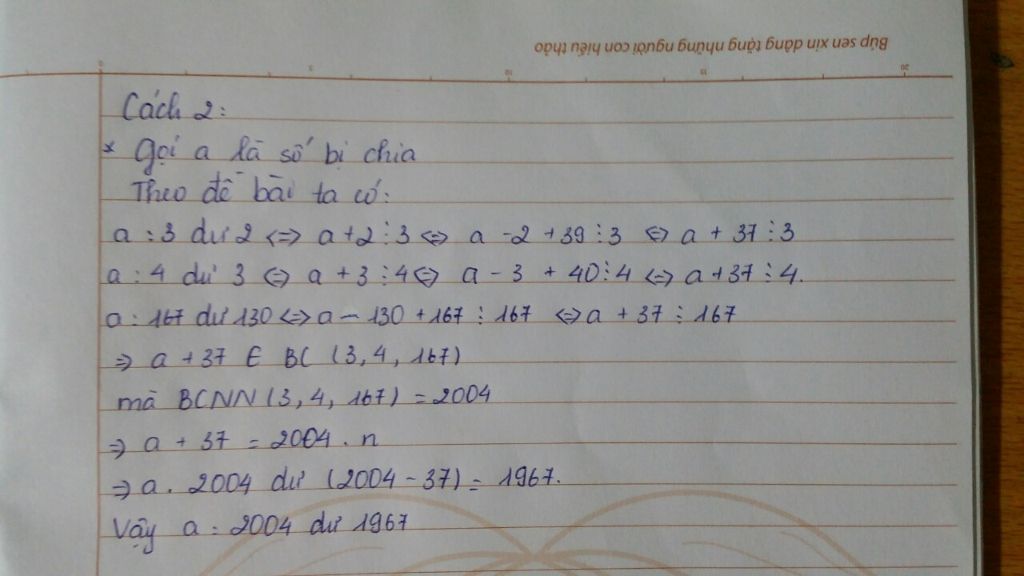 Búp sen xin dâng tặng những người con hiếu thảo
0 5 10 15 20
Cách 2:
* Gọi a là số bị chia
Theo đề bài ta có:
a : 3 dư 2 <=> a + 2 ⋮ 3 <=> a - 2 + 39 ⋮ 3 <=> a + 37 ⋮ 3
a : 4 dư 3 <=> a + 3 ⋮ 4 <=> a - 3 + 40 ⋮ 4 <=> a + 37 ⋮ 4.
a : 167 dư 130 <=> a - 130 + 167 ⋮ 167 <=> a + 37 ⋮ 167
=> a + 37 ∈ BC (3, 4, 167)
mà BCNN (3, 4, 167) = 2004
=> a + 37 = 2004 . n
=> a . 2004 dư (2004 - 37) = 1967.
Vậy a : 2004 dư 1967